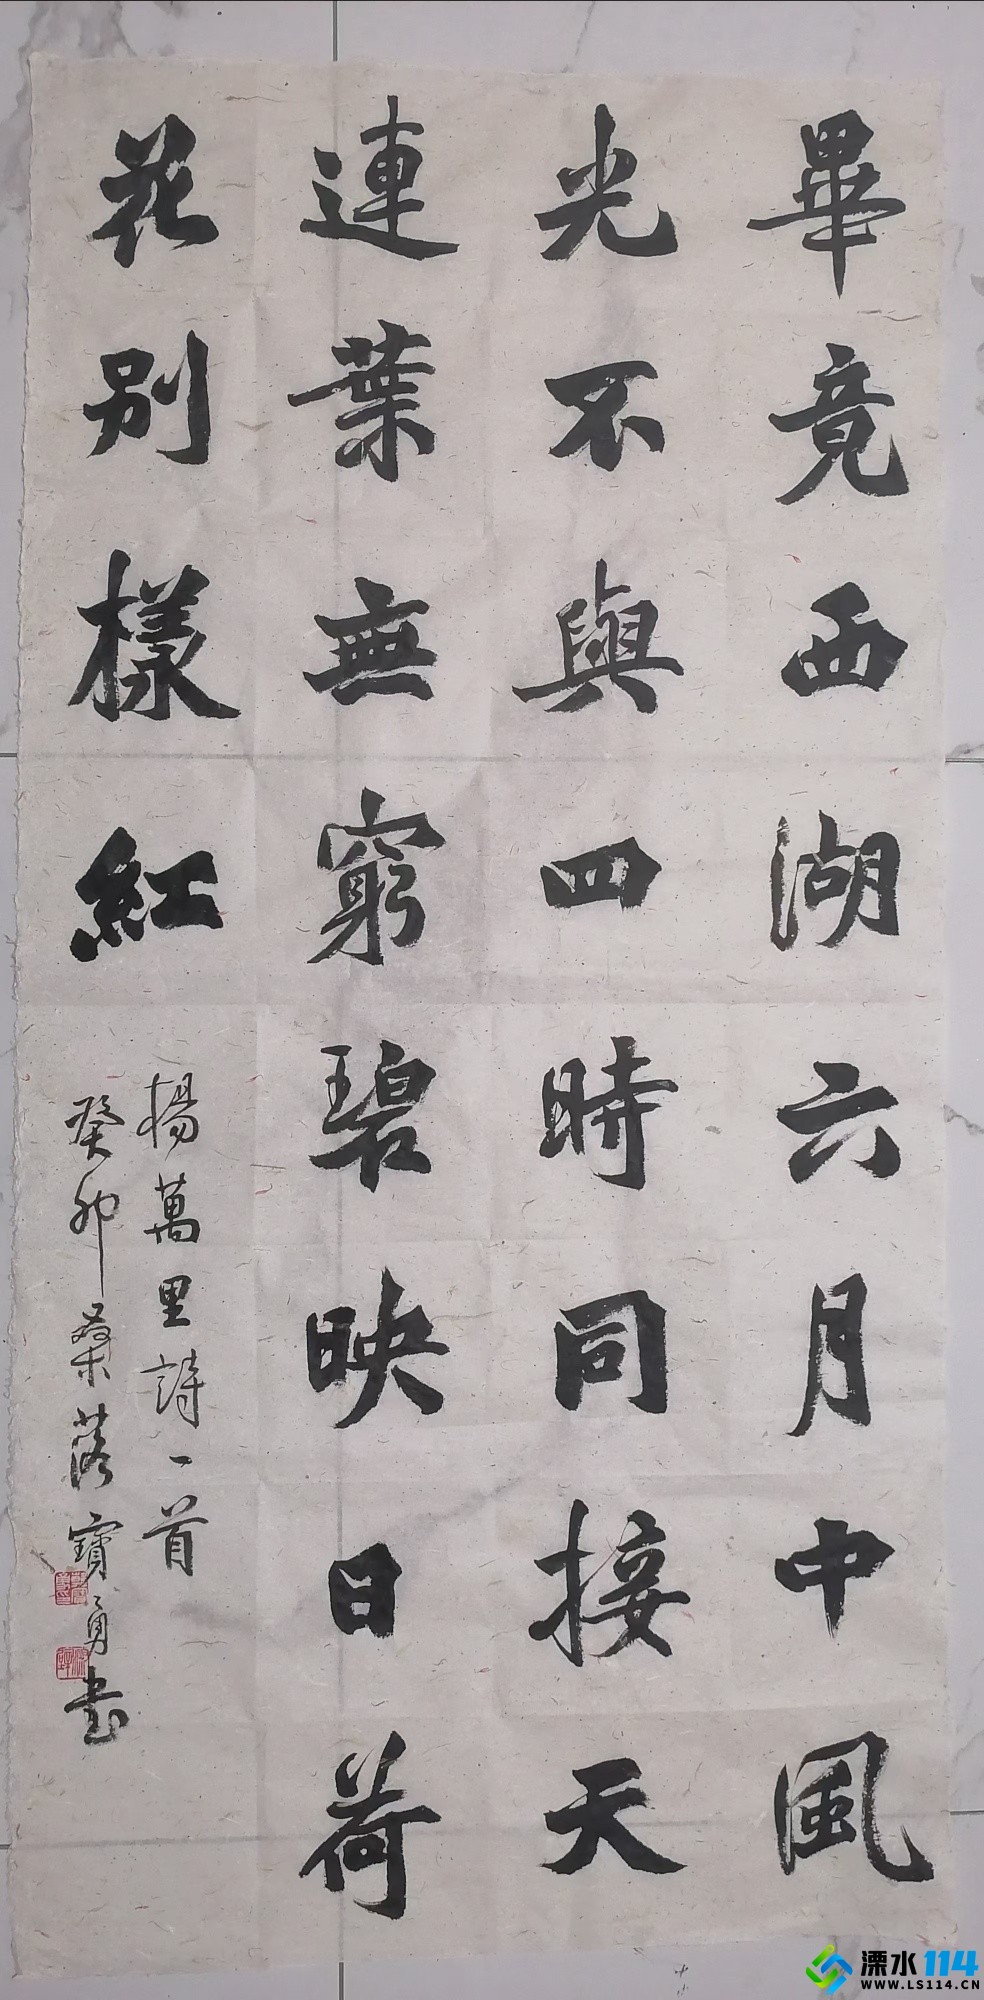 畢竟西湖六月中風
光不與四時同接天
連葉無窮碧映日荷
花別樣紅
楊萬里詩一首
癸卯桑落寶勇书
溧水114
WWW.LS114.CN